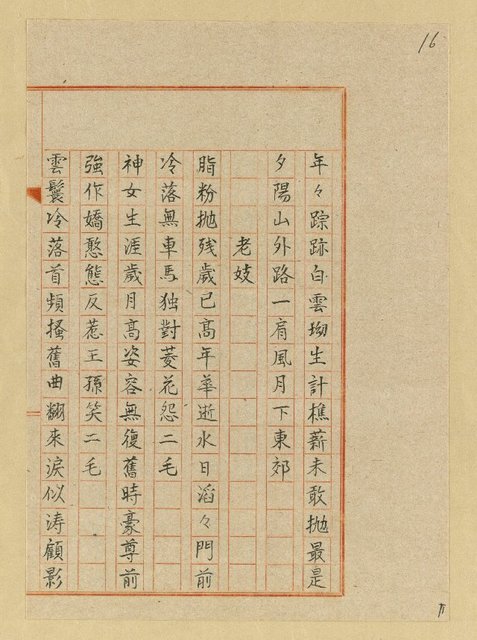 16
年々踪跡白雲坳生計樵薪未敢抛最是
夕陽山外路一肩風月下東郊
老妓
脂粉抛残歲已高年華逝水日滔々門前
冷落無車馬独對菱花怨二毛
神女生涯歲月高姿容無復舊時豪尊前
強作嬌憨態反惹王孫笑二毛
雲鬟冷落首頻搔舊曲翻來淚似涛顧影